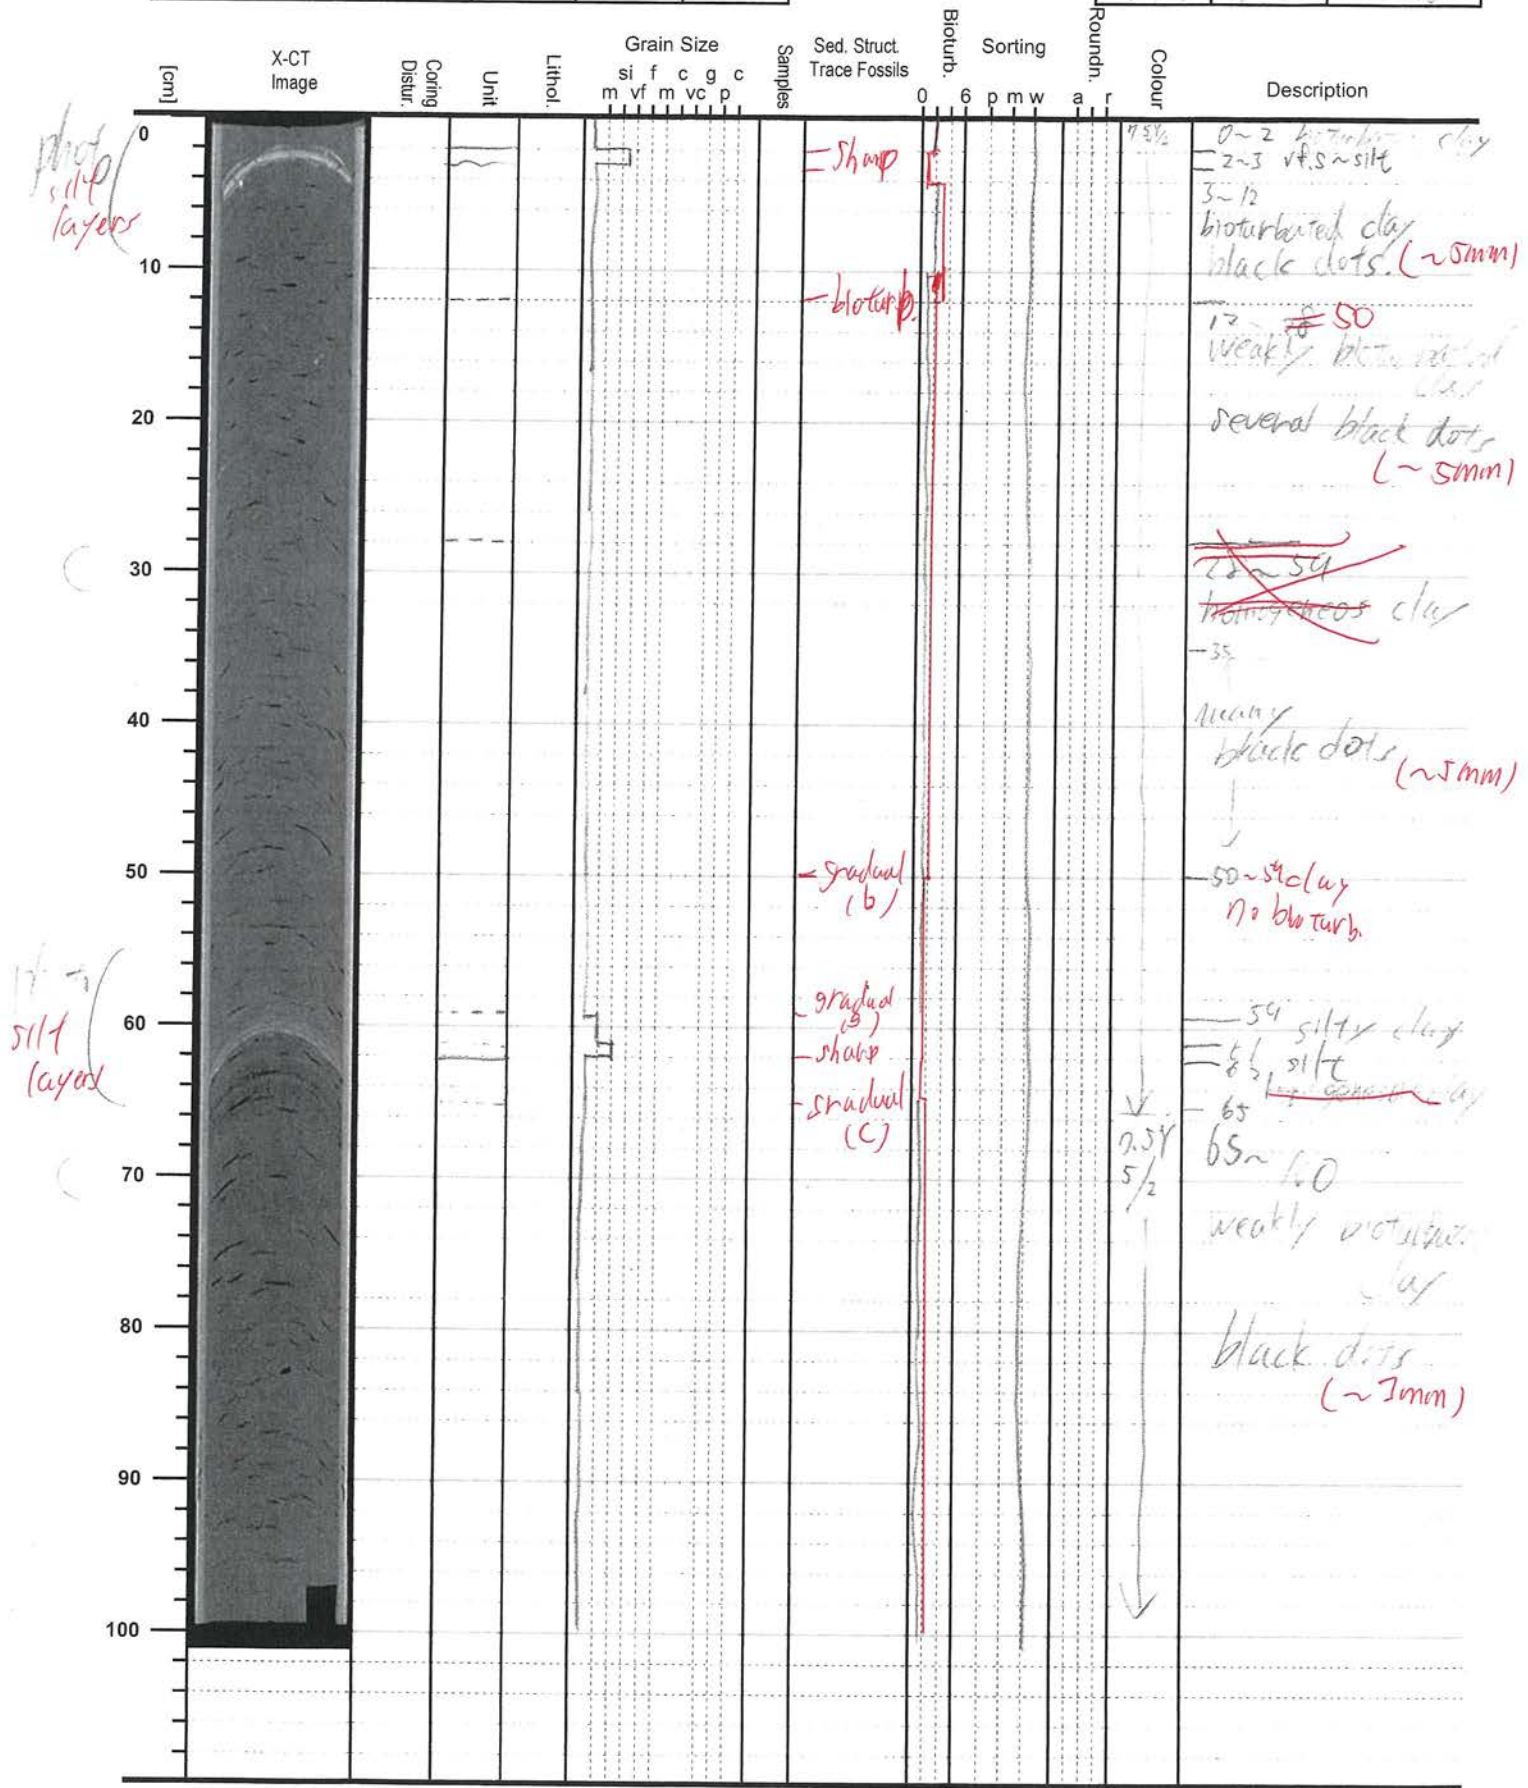 [cm]
X-CT
Image
Coring
Distur.
Unit
Lithol.
Grain Size
si f c g c
m vf m vc p
Samples
Sed. Struct.
Trace Fossils
Bioturb.
0 6
Sorting
p m w
Roundn.
a r
Colour
Description
0
10
20
30
40
50
60
70
80
90
100
photo
silt
layers
silt
layers
sharp
bioturb.
gradual
(b)
gradual
sharp
gradual
(C)
7.5Y
5/2
0~2 clay
2~3 vf.s~silt
3~12
bioturbated clay
black dots. (~5mm)
12 50
weakly bioturbated
clay
several black dots
(~5mm)
28~59
homogeneos clay
35
many
black dots (~5mm)
50~59 clay
no bioturb.
59 silty clay
61
62 silt
clay
65
65~
weakly
black dots